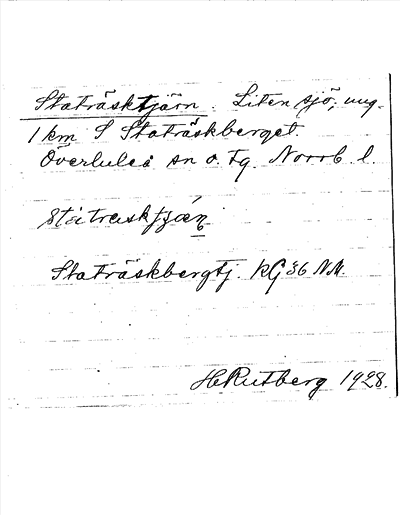 Staträsktjärn. Liten sjö, ung.
1 km S Staträskberget.
Överluleå sn o. tg. Norrb. l.
Staträskbergtj. KG 36 N.M.
H Rutberg 1928.